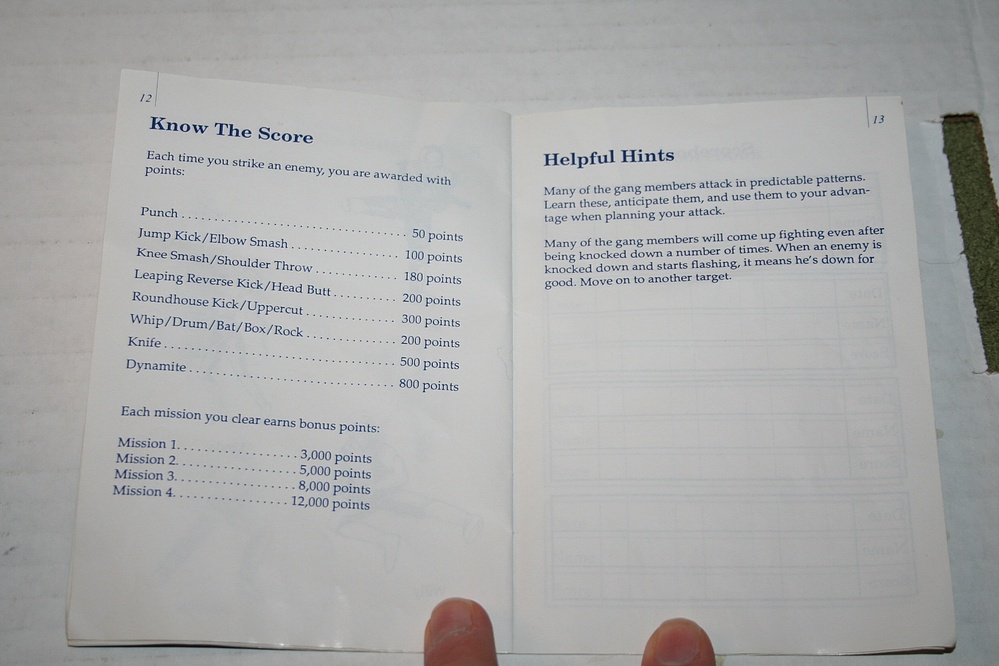 12
Know The Score
Each time you strike an enemy, you are awarded with
points:
Punch . . . . . . . . . . . . . . . . . . . . . . . . . . . . . . . . . . 50 points
Jump Kick/Elbow Smash . . . . . . . . . . . . . . . . 100 points
Knee Smash/Shoulder Throw . . . . . . . . . . . . 180 points
Leaping Reverse Kick/Head Butt . . . . . . . . . 200 points
Roundhouse Kick/Uppercut . . . . . . . . . . . . . 300 points
Whip/Drum/Bat/Box/Rock . . . . . . . . . . . . . 200 points
Knife . . . . . . . . . . . . . . . . . . . . . . . . . . . . . . . . . . 500 points
Dynamite . . . . . . . . . . . . . . . . . . . . . . . . . . . . . . 800 points
Each mission you clear earns bonus points:
Mission 1. . . . . . . . . . . . . . . . . . 3,000 points
Mission 2. . . . . . . . . . . . . . . . . . 5,000 points
Mission 3. . . . . . . . . . . . . . . . . . 8,000 points
Mission 4. . . . . . . . . . . . . . . . . 12,000 points
13
Helpful Hints
Many of the gang members attack in predictable patterns.
Learn these, anticipate them, and use them to your advan-
tage when planning your attack.
Many of the gang members will come up fighting even after
being knocked down a number of times. When an enemy is
knocked down and starts flashing, it means he's down for
good. Move on to another target.